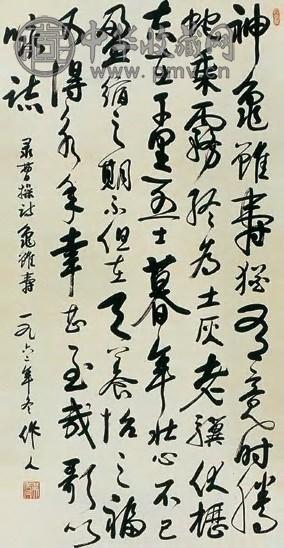 神龜雖壽猶有竟時騰
蛇乘霧終為土灰老驥伏櫪
志在千里烈士暮年壯心不已
盈縮之期不但在天養怡之福
可得永年幸甚至哉歌以
咏誌
录曹操诗龜雖壽 一九六二年冬 作人
中华收藏网